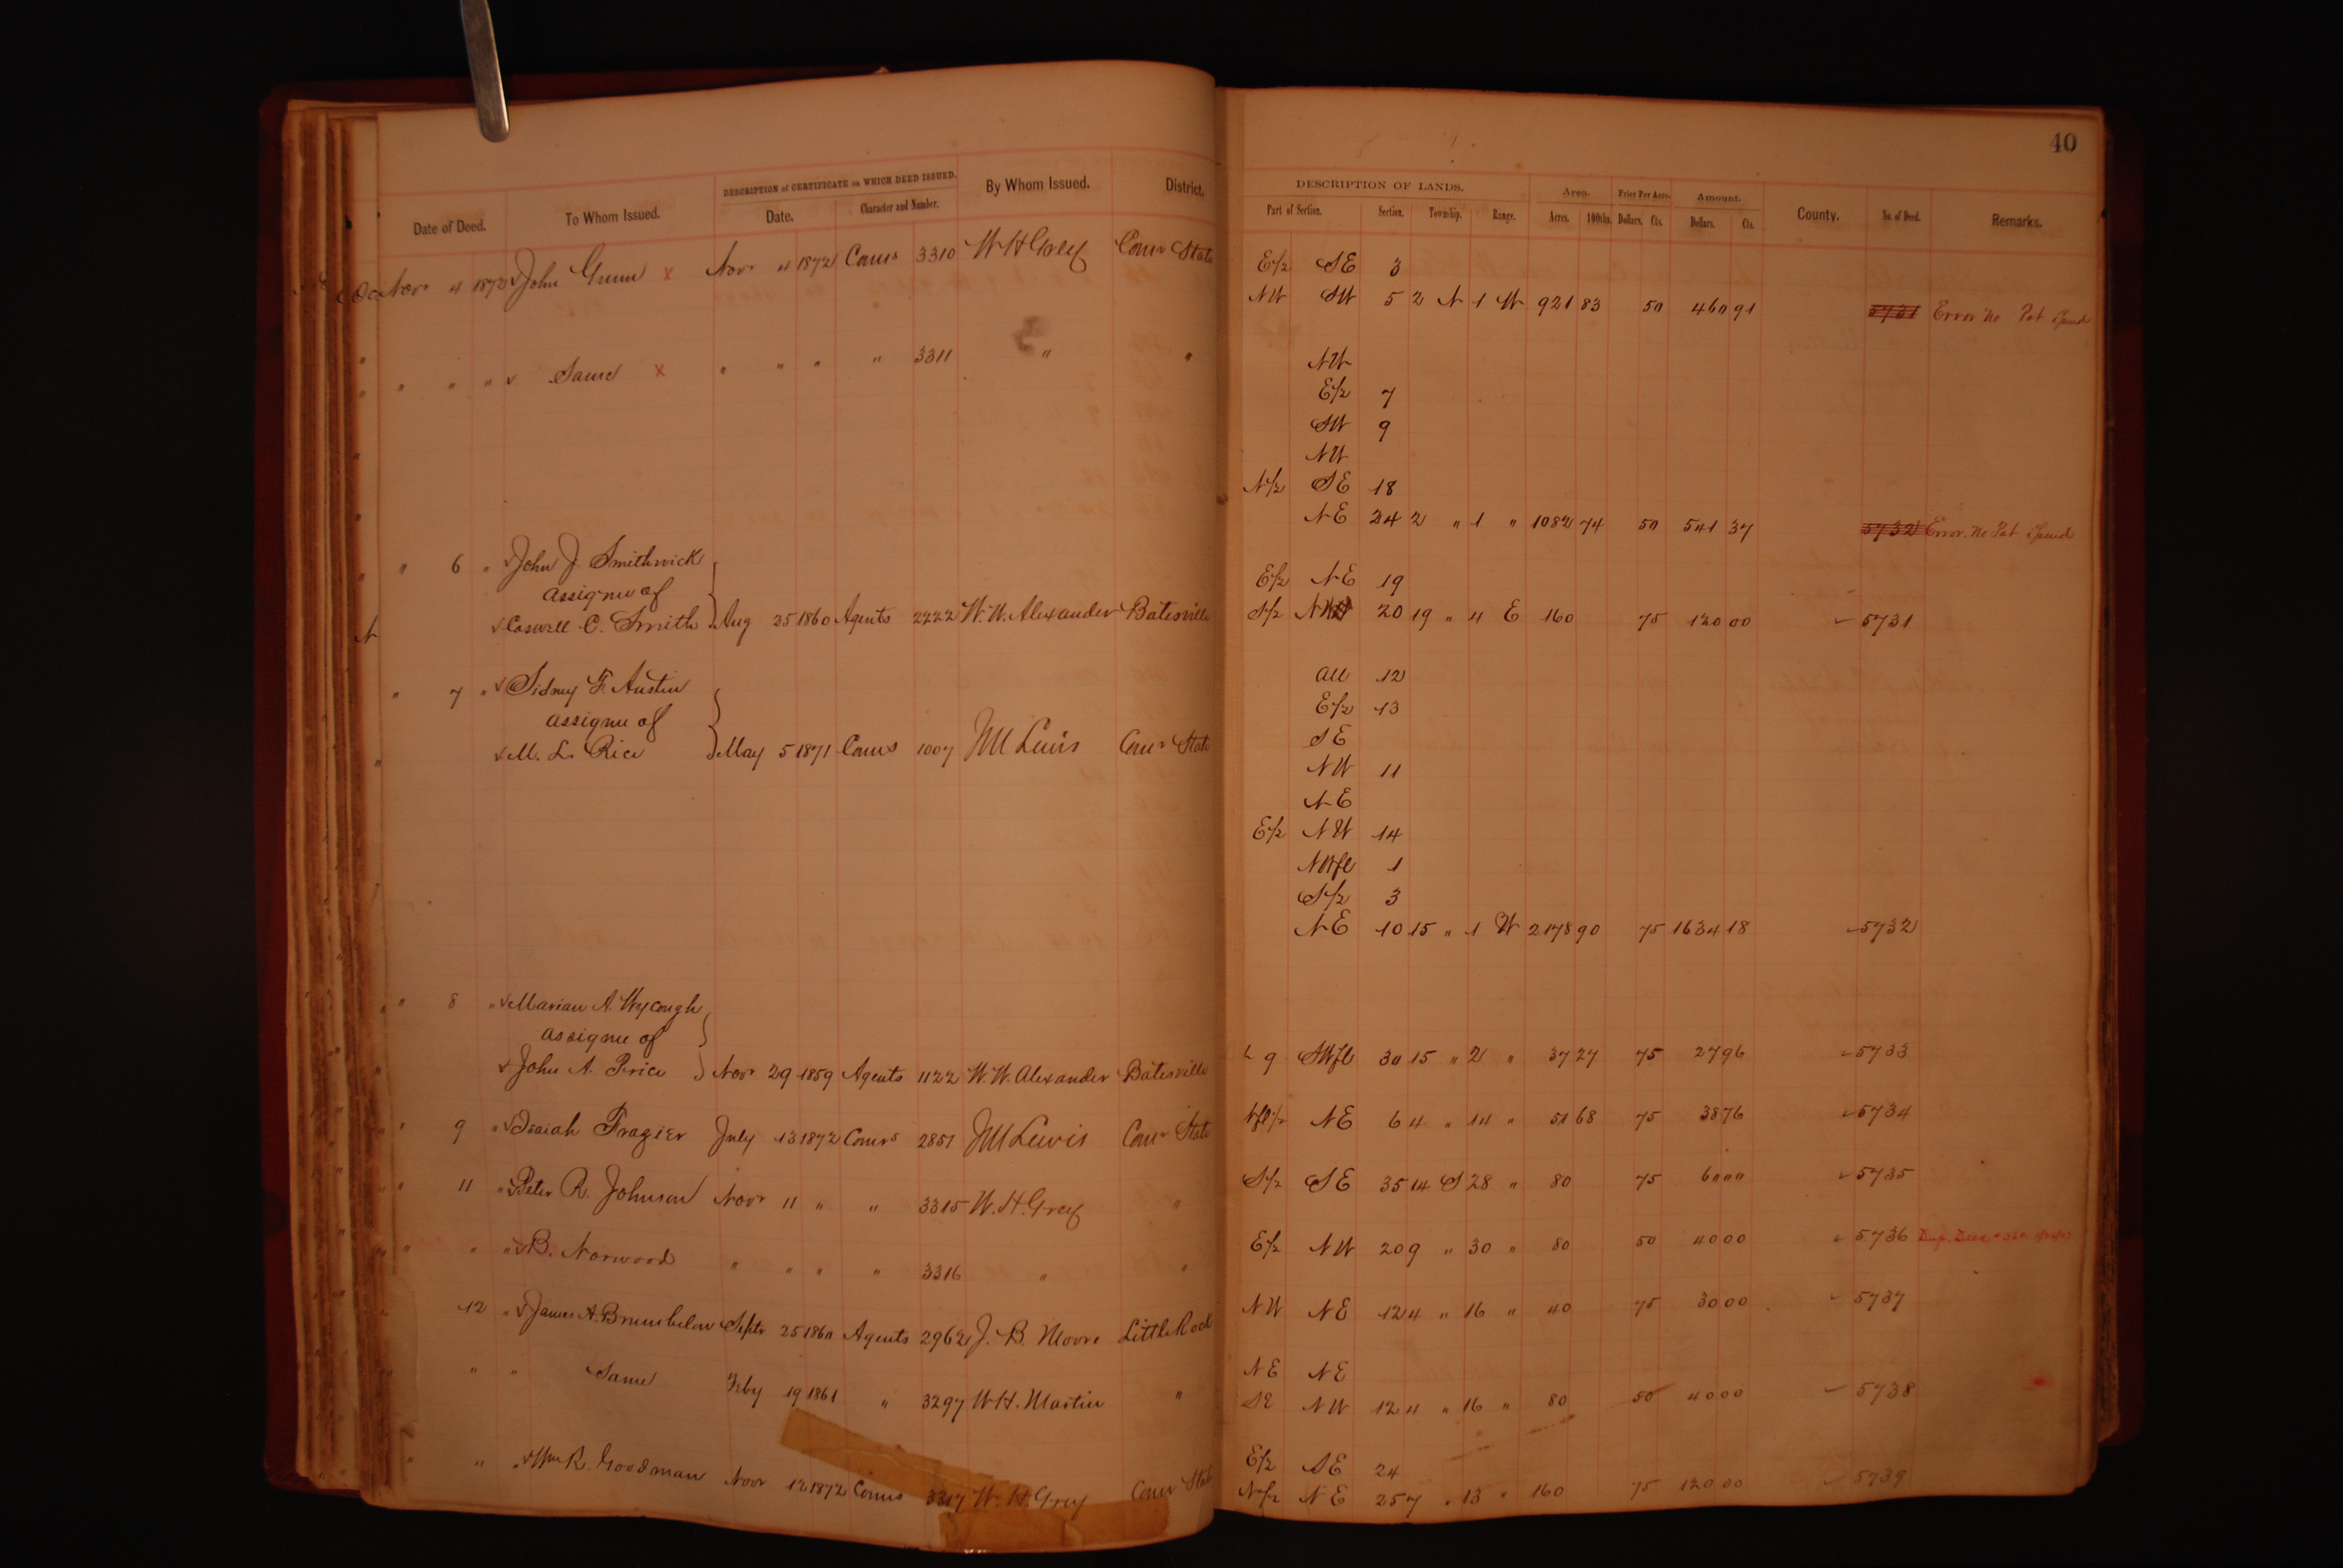 40
DESCRIPTION of CERTIFICATE on WHICH DEED ISSUED. By Whom Issued. District. DESCRIPTION OF LANDS. Area. Price Per Acre. Amount. County. No. of Deed. Remarks.
Date of Deed. To Whom Issued. Date. Character and Number. Part of Section. Section. Township. Range. Acres. 100ths. Dollars. Cts. Dollars. Cts.
Novr 4 1872 John Gunn x Novr 4 1872 Coms 3310 W H Grey Comr State E/2 SE 3
NW SW 5 2 N 1 W 921 83 50 460 91 5731 Error No Pat issued
" " " Same x " " " " 3311 " " NW
E/2 7
SW 9
NW
N/2 SE 18
NE 24 2 " 1 " 1082 74 50 541 37 5732 Error. No Pat issued
" 6 " John J Smithwick E/2 NE 19
assignee of
Caswell C. Smith Aug 25 1860 Agents 2222 W. W. Alexander Batesville S/2 NW 20 19 " 4 E 160 75 120 00 5731
" 7 " Sidney F. Austin All 12
assignee of E/2 13
M. L. Rice May 5 1871 Coms 1007 J M Lewis Comr State SE
NW 11
NE
E/2 NW 14
NWfl 1
S/2 3
NE 10 15 " 1 W 2178 90 75 1634 18 5732
" 8 " Marian A. Wycough
assignee of
John A. Price Novr 29 1859 Agents 1122 W. W. Alexander Batesville 9 SWfl 30 15 " 2 " 37 27 75 27 96 5733
" 9 " Isaiah Frazier July 13 1872 Comrs 2851 J M Lewis Comr State Nfl/2 NE 6 4 " 14 " 51 68 75 38 76 5734
" 11 " Peter R. Johnson Novr 11 " " 3315 W. H. Grey " S/2 SE 35 14 S 28 " 80 75 60 00 5735
" " " B. Norwood " " " " 3316 " " E/2 NW 20 9 " 30 " 80 50 40 00 5736
12 " James A. Brumbelow Septr 25 1860 Agents 2962 J. B. Moore Little Rock NW NE 12 4 " 16 " 40 75 30 00 5737
" " Same Feby 19 1861 " 3297 W H. Martin " NE NE
SE NW 12 4 " 16 " 80 50 40 00 5738
" " " Wm R. Goodman Novr 12 1872 Comrs 3317 W. H. Grey Comr State E/2 SE 24
N/2 NE 25 7 " 13 " 160 75 120 00 5739